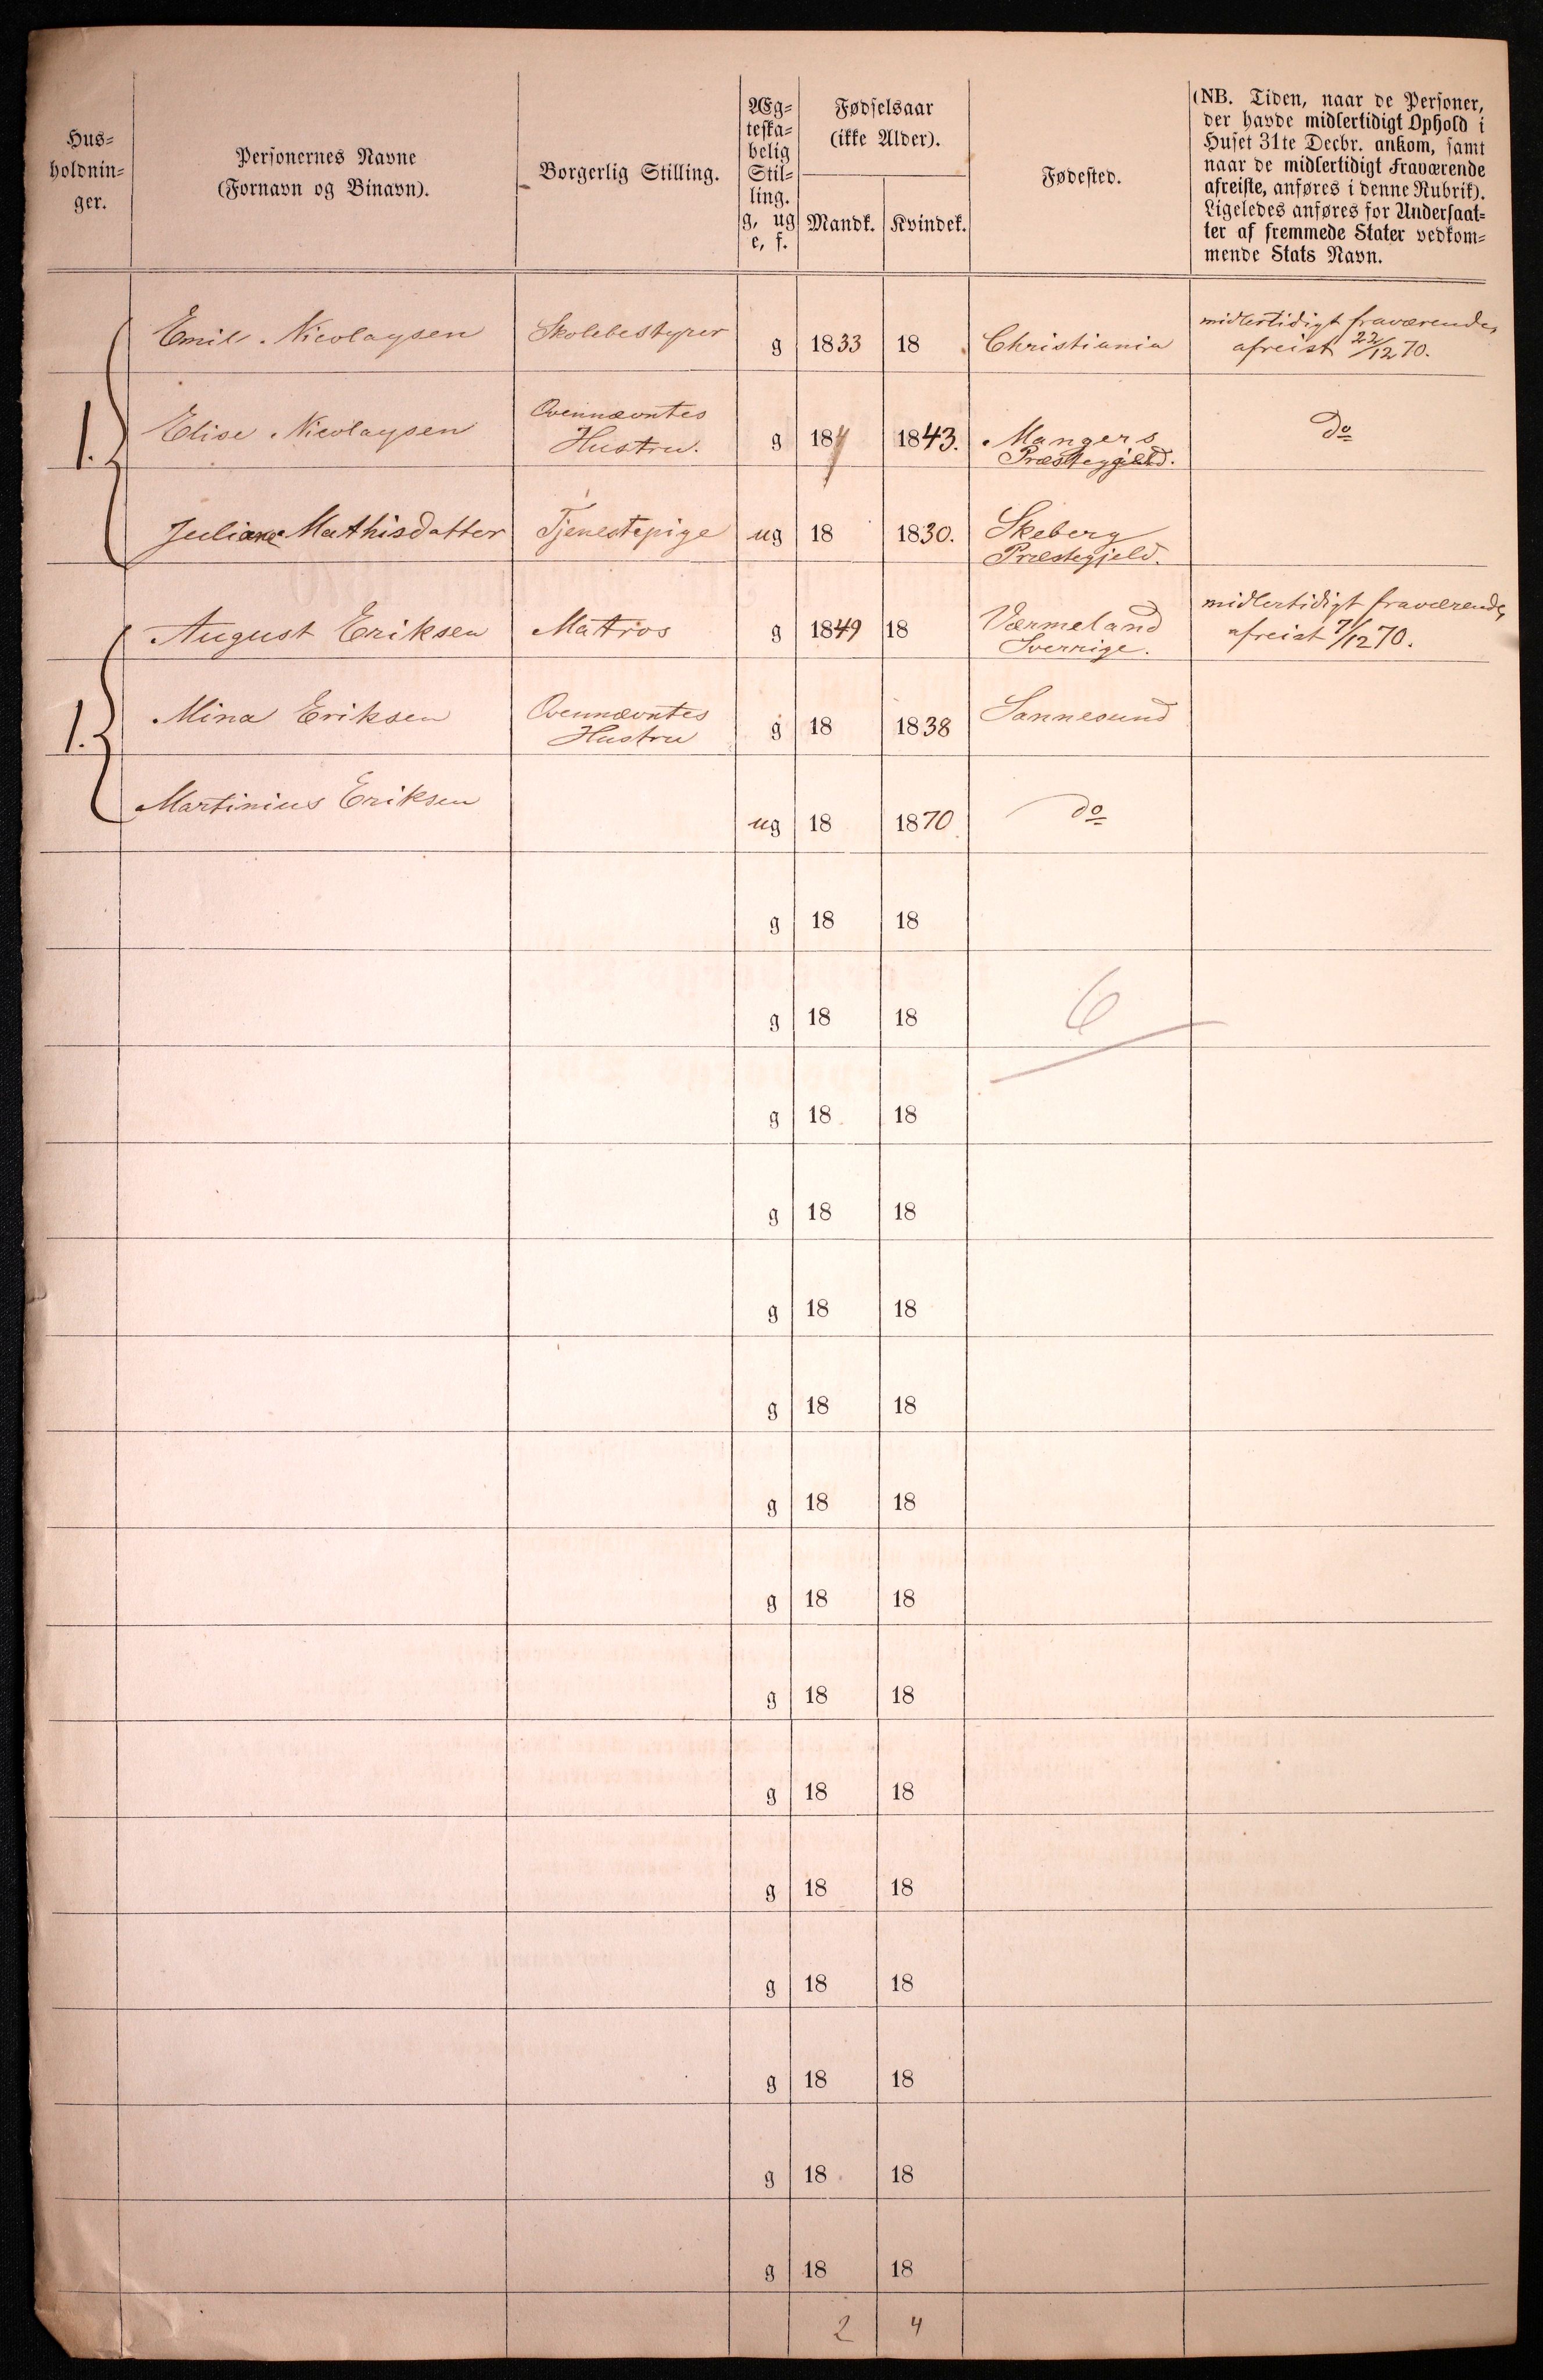 Hus-
holdnin-
ger.
Personernes Navne
(Fornavn og Binavn).
Borgerlig Stilling.
Æg-
teska-
belig
Stil-
ling.
g, ug
e, f.
Fødselsaar
(ikke Alder).
Mandk. Kvindek.
Fødested.
(NB. Tiden, naar de Personer,
der havde midlertidigt Ophold i
Huset 31te Decbr. ankom, samt
naar de midlertidigt Fraværende
afreiste, anføres i denne Rubrik).
Ligeledes anføres for Undersaat-
ter af fremmede Stater vedkom-
mende Stats Navn.
Emil Nicolaysen Skolebestyrer g 1833 18 Christiania midlertidigt fraværende, afreist 22/12 70.
1. Elise Nicolaysen Ovennævntes Hustru. g 184 1843. Mangers Præstegjeld. do
Juliane Mathisdatter Tjenestepige ug 18 1830. Skeberg Præstegjeld.
August Eriksen Matros g 1849 18 Værmeland Sverrige. midlertidigt fraværende, afreist 7/12 70.
1. Mina Eriksen Ovennævntes Hustru g 18 1838 Sannesund
Martinius Eriksen ug 18 1870 do
g 18 18
g 18 18 6
g 18 18
g 18 18
g 18 18
g 18 18
g 18 18
g 18 18
g 18 18
g 18 18
g 18 18
g 18 18
g 18 18
g 18 18
g 18 18
2 4